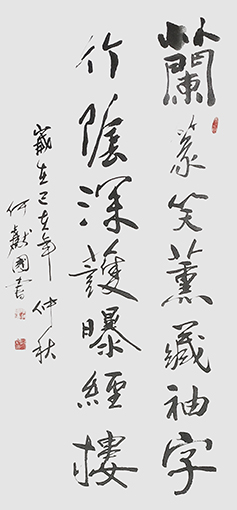 蘭篆笑薰袖字
竹陰深護曝經樓
歲在己亥年仲秋
何獻國書